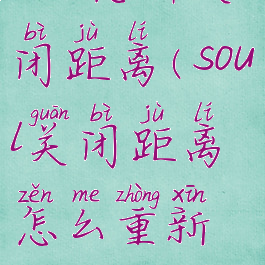 bì jù lí
闭距离(sou
guān bì jù lí
l关闭距离
zěn me zhòng xīn
怎么重新